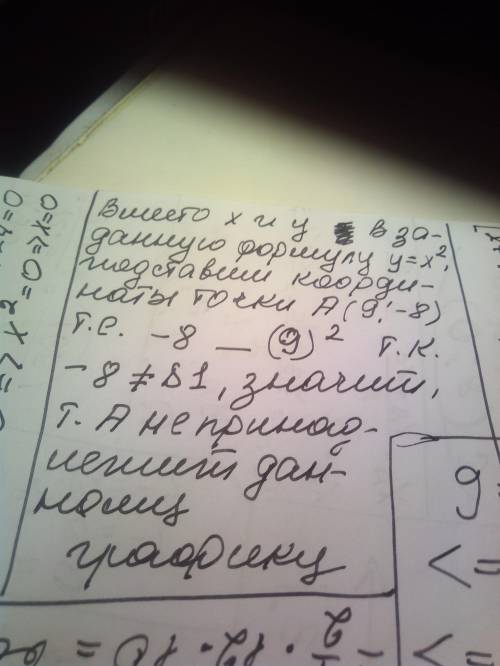 Вместо x и y в за-
данную формулу y=x²,
подставим коорди-
наты точки A(9;-8)
т.е. -8 — (9)² т.к.
-8≠81, значит,
т. А не принад-
лежит дан-
ному
графику
y=0
=> x²=0=>x=0
9
=>
=>